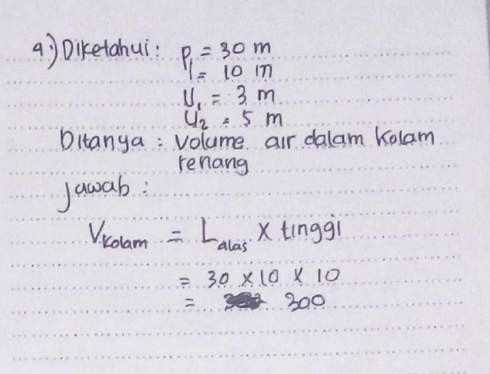 4.) Diketahui : p = 30 m
l = 10 m
U₁ = 3 m
U₂ = 5 m
Ditanya : Volume air dalam kolam
renang
Jawab :
V kolam = L alas × tinggi
= 30 × 10 × 10
= 300